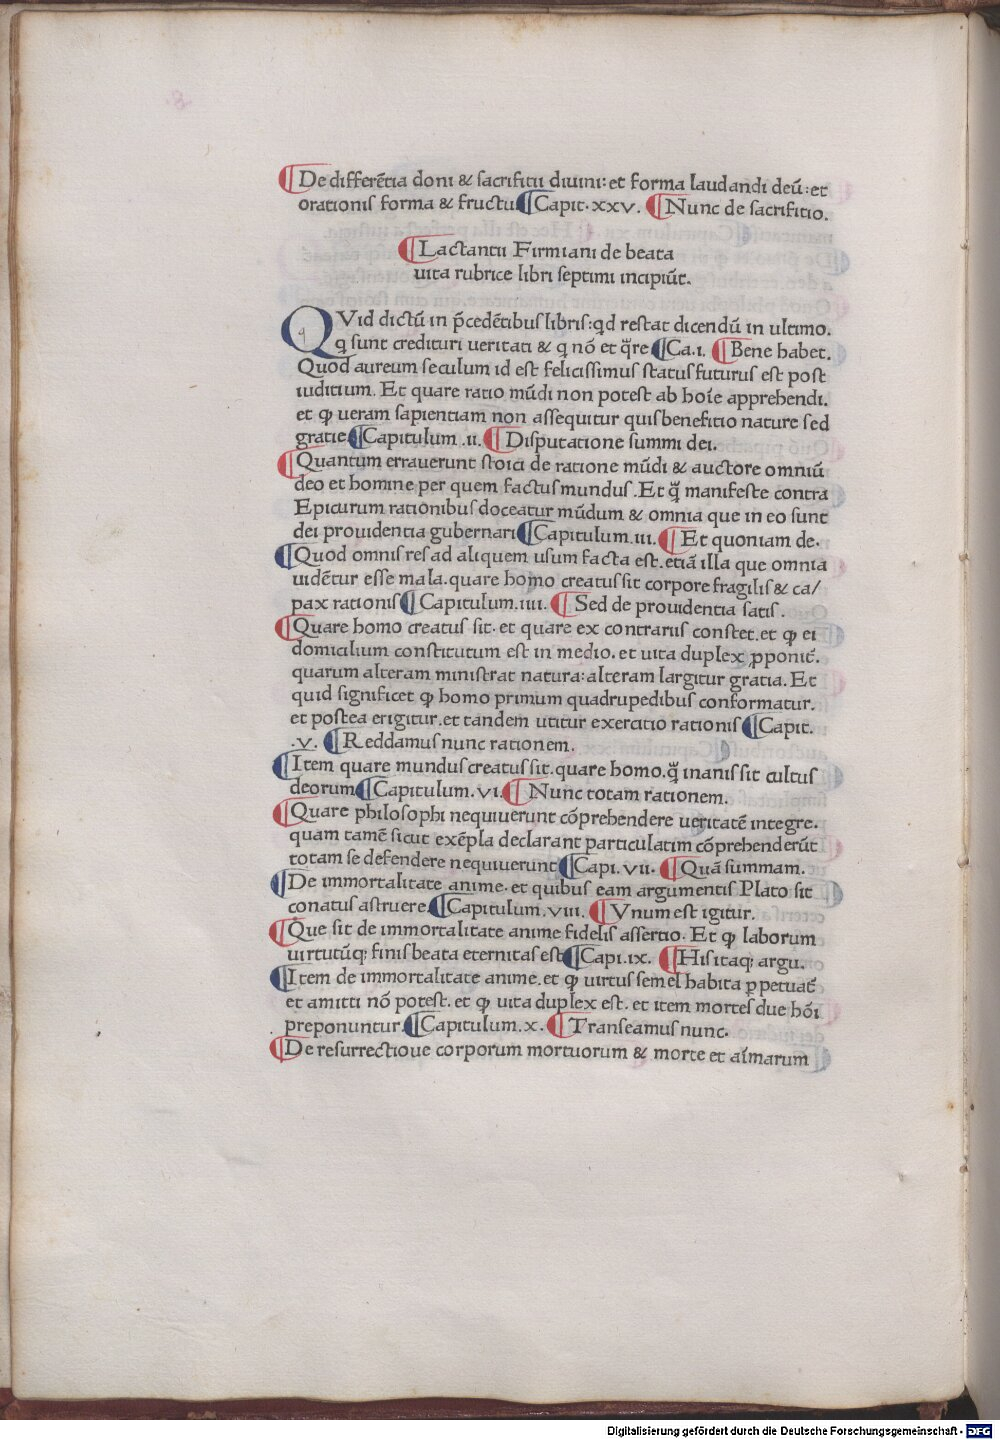 ¶De differẽtia doni & sacrifitii diuini: et forma laudandi deũ: et
orationis forma & fructu ¶Capit.xxv. ¶Nunc de sacrifitio.
¶Lactantii Firmiani de beata
uita rubrice libri septimi incipiũt.
QVid dictũ in p̃cedẽtibus libris: qd restat dicendũ in ultimo.
q sunt credituri ueritati & q nõ et q̃re ¶Ca.i. ¶Bene habet.
Quod aureum seculum id est felicissimus status futurus est post
iuditium. Et quare ratio mũdi non potest ab hoĩe apprehendi.
et ꝙ ueram sapientiam non assequitur quis benefitio nature sed
gratie ¶Capitulum .ii. ¶Disputatione summi dei.
¶Quantum errauerunt stoici de ratione mũdi & auctore omniũ
deo et homine per quem factus mundus. Et q̃ manifeste contra
Epicurum rationibus doceatur mũdum & omnia que in eo sunt
dei prouidentia gubernari ¶Capitulum.iii. ¶Et quoniam de.
¶Quod omnis res ad aliquem usum facta est. etiã illa que omnia
uidẽtur esse mala. quare homo creatus sit corpore fragilis & ca/
pax rationis ¶Capitulum.iiii. ¶Sed de prouidentia satis.
¶Quare homo creatus sit. et quare ex contrariis constet. et ꝙ ei
domicilium constitutum est in medio. et uita duplex ꝓponit̃.
quarum alteram ministrat natura: alteram largitur gratia. Et
quid significet ꝙ homo primum quadrupedibus conformatur.
et postea erigitur. et tandem utitur exercitio rationis ¶Capit.
.v. ¶Reddamus nunc rationem.
¶Item quare mundus creatus sit. quare homo. q̃ inanis sit cultus
deorum ¶Capitulum.vi. ¶Nunc totam rationem.
¶Quare philosophi nequiuerunt cõprehendere ueritatẽ integre.
quam tamẽ sicut exẽpla declarant particulatim cõprehenderũt
totam se defendere nequiuerunt ¶Capi.vii. ¶Quã summam.
¶De immortalitate anime. et quibus eam argumentis Plato sit
conatus astruere ¶Capitulum.viii. ¶Vnum est igitur.
¶Que sit de immortalitate anime fidelis assertio. Et ꝙ laborum
uirtutũq; finis beata eternitas est ¶Capi.ix. ¶His itaq; argu.
¶Item de immortalitate anime. et ꝙ uirtus semel habita ꝑpetuat̃
et amitti nõ potest. et ꝙ uita duplex est. et item mortes due hõi
preponuntur. ¶Capitulum.x. ¶Transeamus nunc.
¶De resurrectioue corporum mortuorum & morte et aĩmarum
Digitalisierung gefördert durch die Deutsche Forschungsgemeinschaft - DFG